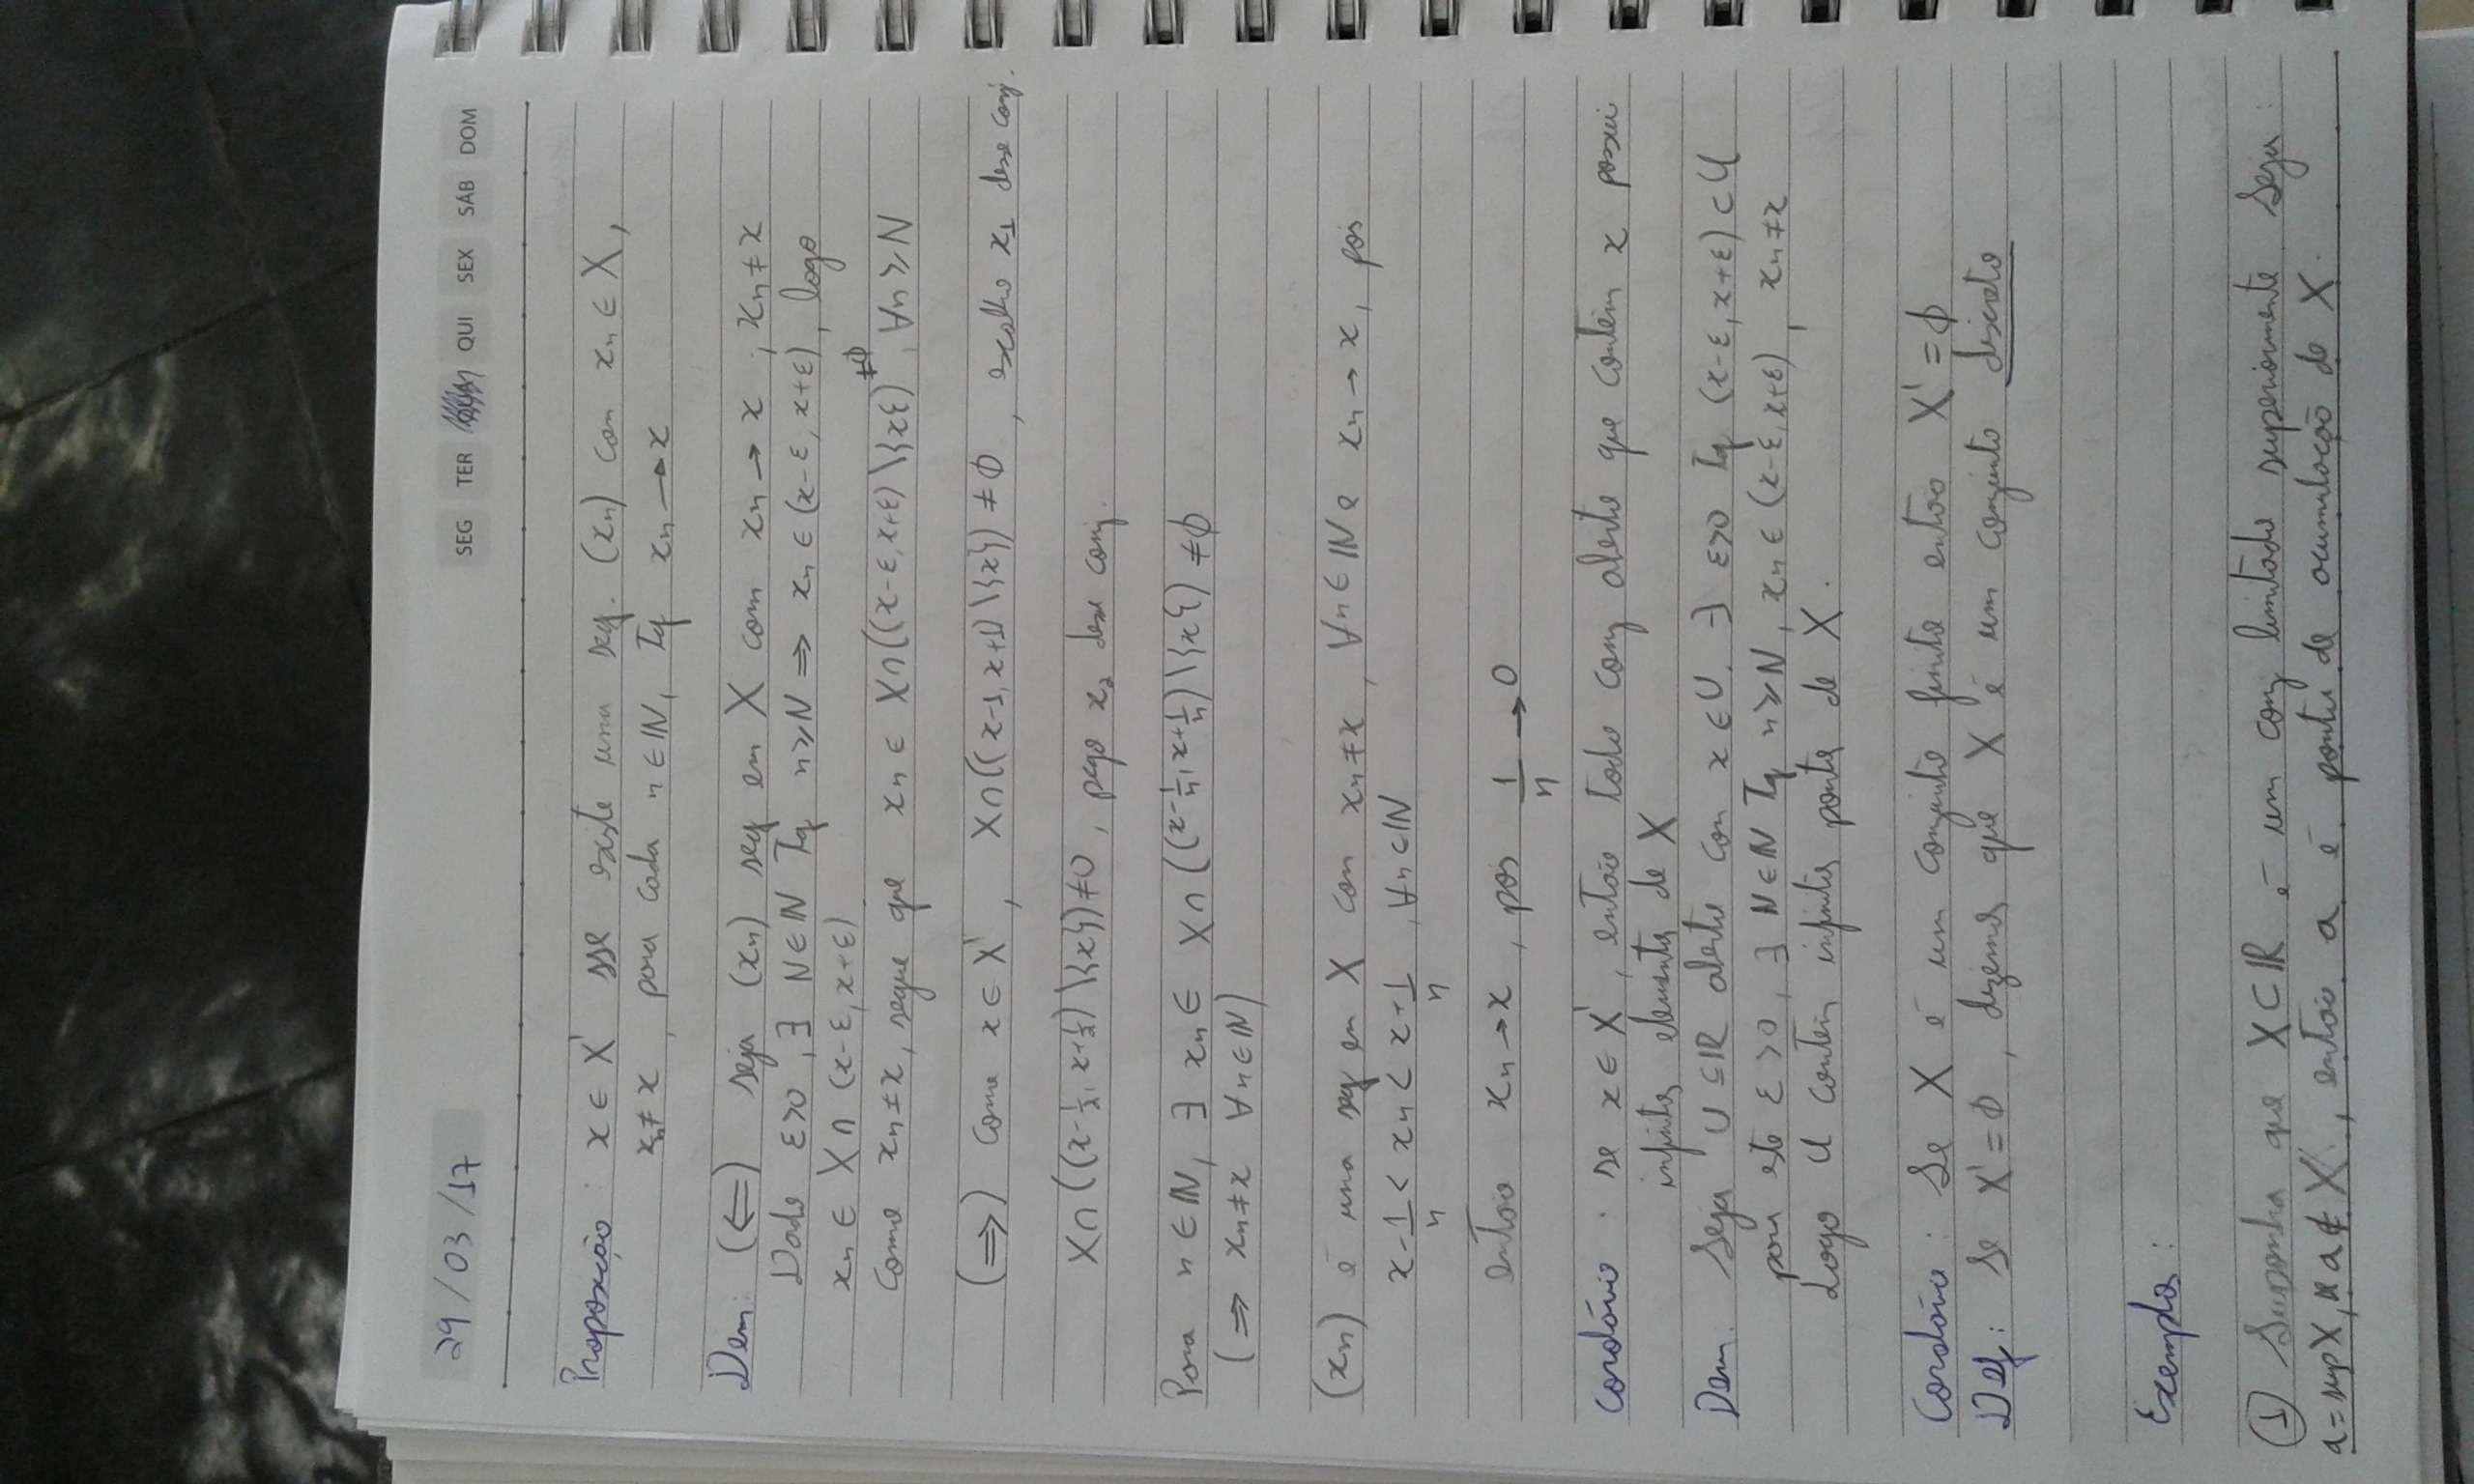 29/03/17 SEG TER QUA QUI SEX SÁB DOM
Proposição: x ∈ X' sse existe uma seq. (xn) com xn ∈ X,
xn ≠ x, para cada n ∈ ℕ, Tq xn → x
Dem: (⇐) seja (xn) seq em X com xn → x ; xn ≠ x
Dado ε>0, ∃ N∈ℕ Tq n≥N ⇒ xn ∈ (x-ε, x+ε), logo
xn ∈ X∩(x-ε, x+ε)
Como xn ≠ x, segue que xn ∈ X∩((x-ε, x+ε)\{x}) ≠∅, ∀n≥N
(⇒) Como x ∈ X', X∩((x-1, x+1)\{x}) ≠ ∅, escolho x1 desse conj.
X∩((x-1/2, x+1/2)\{x}) ≠ ∅, pego x2 desse conj.
Para n ∈ ℕ, ∃ xn ∈ X∩((x-1/n, x+1/n)\{x}) ≠ ∅
(⇒ xn ≠ x ∀n∈ℕ)
(xn) é uma seq em X com xn ≠ x, ∀n∈ℕ e xn → x, pois
x-1/n < xn < x+1/n, ∀n∈ℕ
então xn → x, pois 1/n → 0
Corolário: se x ∈ X', então todo conj aberto que contém x possui
infinitos elementos de X
Dem. Seja U ⊆ ℝ aberto com x ∈ U. ∃ ε>0 Tq (x-ε, x+ε) ⊂ U
para este ε>0, ∃ N∈ℕ Tq n≥N, xn ∈ (x-ε, x+ε), xn ≠ x
Logo U contém infinitos pontos de X.
Corolário: Se X é um conjunto finito então X' = ∅
Def: Se X' = ∅, dizemos que X é um conjunto discreto
Exemplos:
① Suponha que X ⊂ ℝ é um conj limitado superiormente. Seja
a = sup X, se a ∉ X, então a é ponto de acumulação de X.